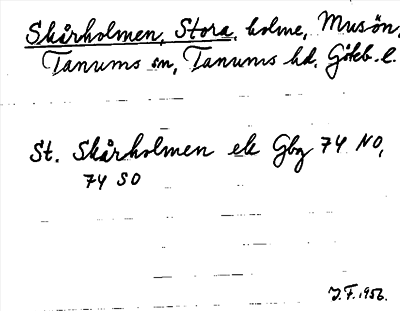 Skårholmen, Stora, holme, Musön,
Tanums sn, Tanums hd. Göteb. l.
St. Skårholmen ek Gbg 74 NO,
74 SO
J.F. 1956.